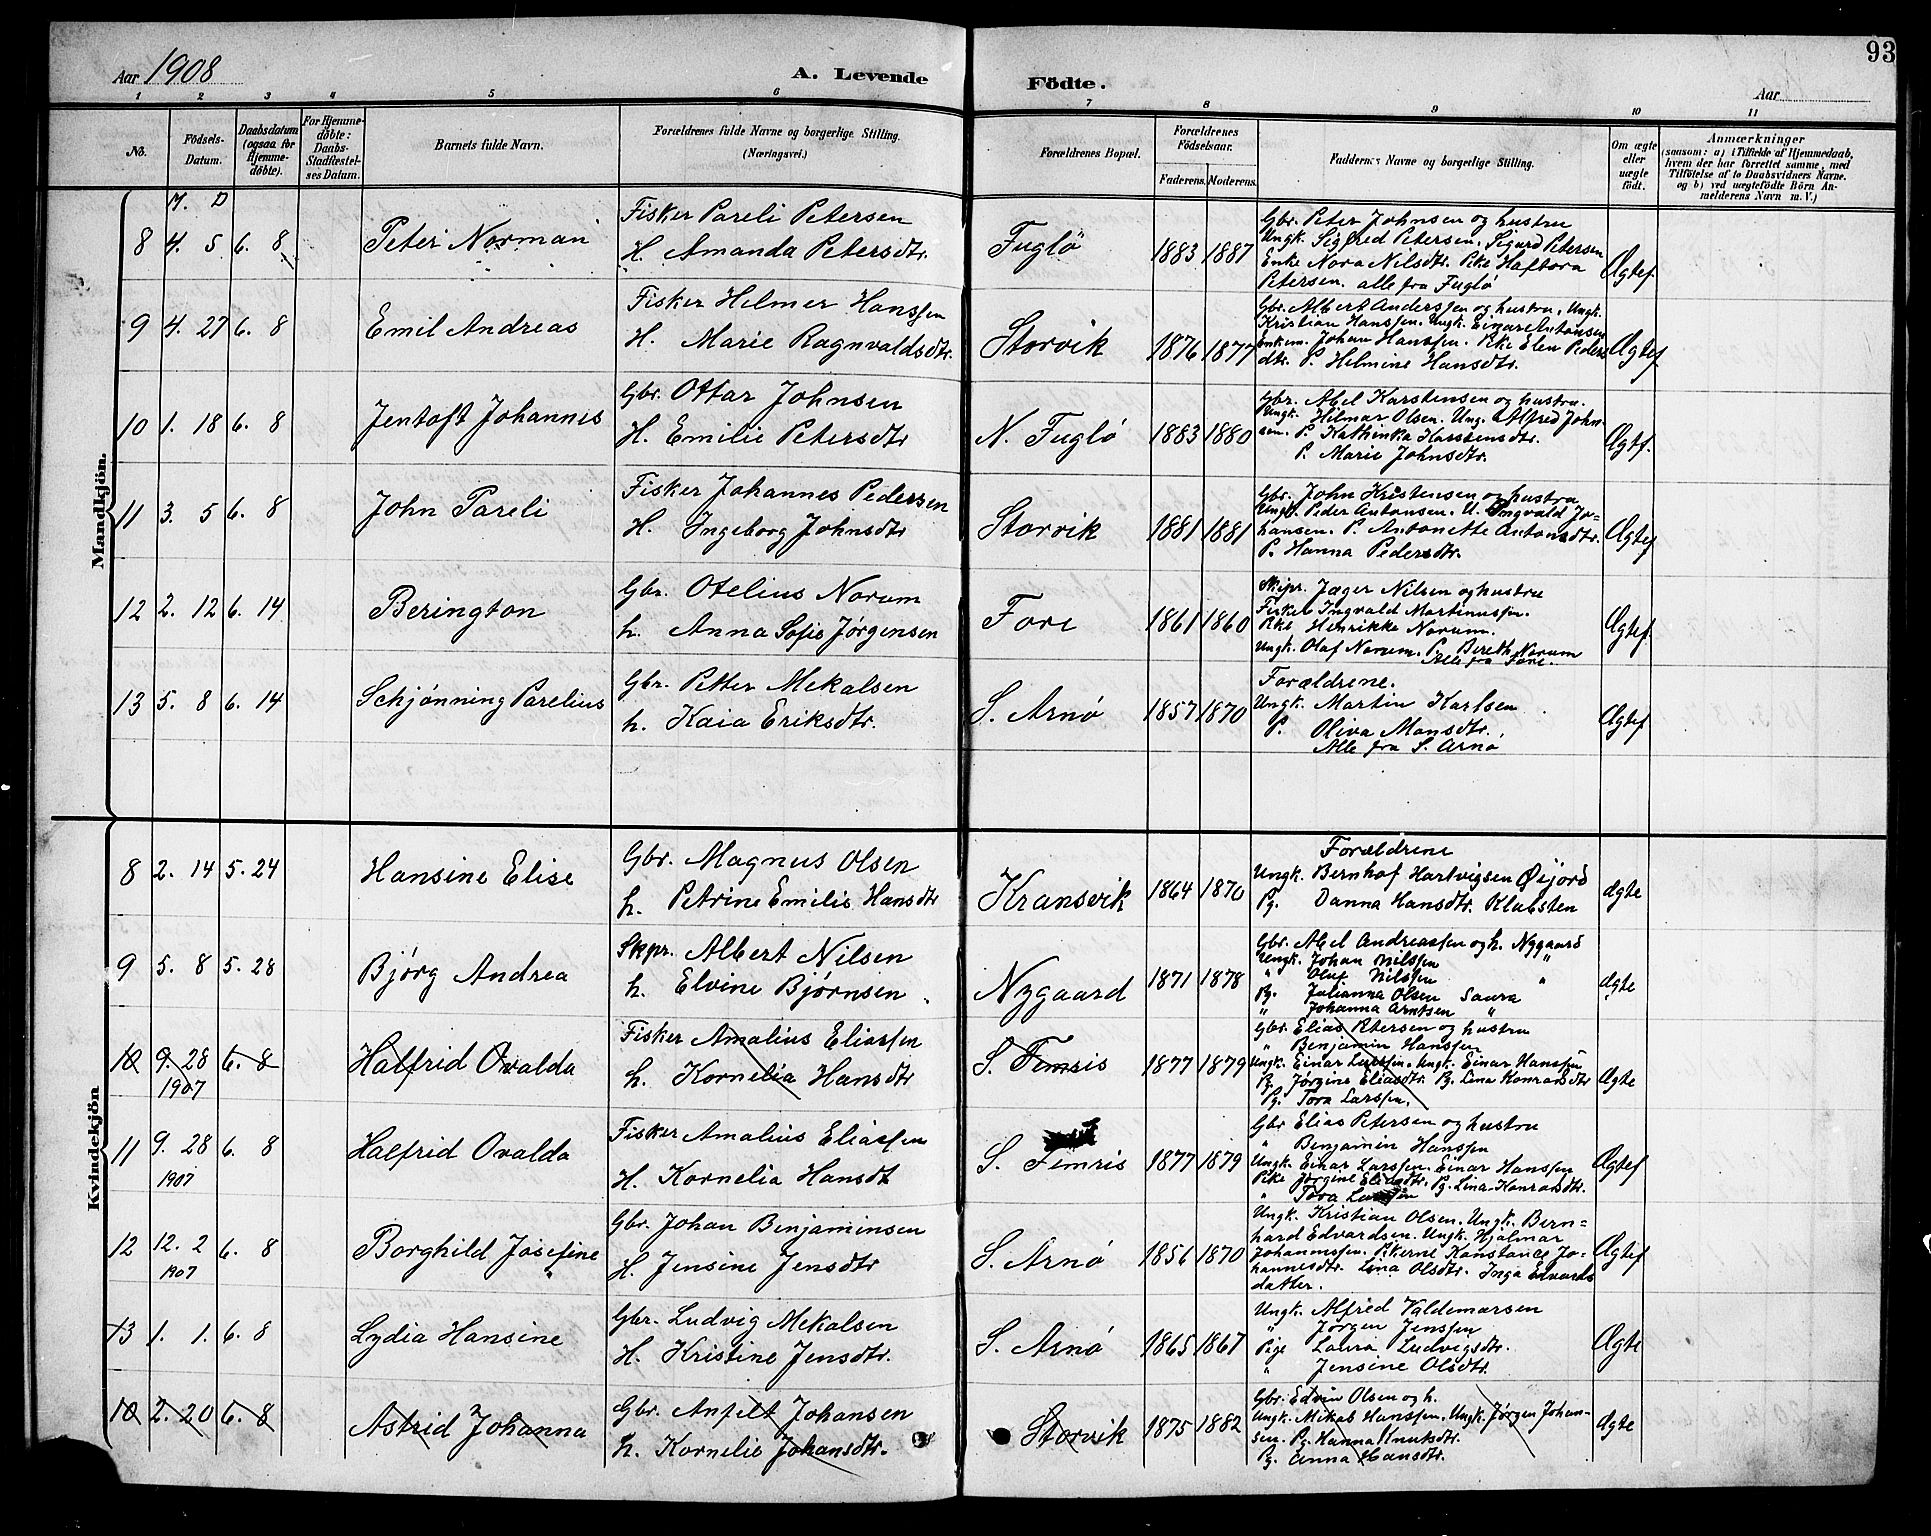 93
Aar 1908
A. Levende Födte.
Aar
1 2 3 4 5 6 7 8 9 10 11
Nö.
Födsels-Datum.
Daabsdatum (ogsaa for Hjemme-döbte).
For Hjemme-döbte: Daabs-Stadfæstel-ses Datum.
Barnets fulde Navn.
Forældrenes fulde Navne og borgerlige Stilling.
(Næringsvei.)
Forældrenes Bopæl.
Forældrenes Födselsaar.
Faderens. Moderens.
Faddernes Navne og borgerlige Stilling.
Om ægte eller uægte födt.
Anmærkninger
(saasom: a) i Tilfælde af Hjemmedaab,
hvem der har forrettet samme, med
Tilföielse af to Daabsvidners Navne.
og b) ved uægtefödte Börn An-
melderens Navn m. V.)
Mandkjön.
M. D
8 4. 5 6. 8 Peter Norman
Fisker Pareli Petersen
H. Amanda Petersdtr.
Fuglö 1883 1887
Gbr. Peter Johnsen og hustru
Ungk. Sigfred Petersen. Sigurd Petersen
Enke Nora Nilsdtr. Pike Hafbora
Petersen. alle fra Fuglö
Ægtef.
9 4. 27 6. 8 Emil Andreas
Fisker Helmer Hanssen
H. Marie Ragnvaldsdtr.
Storvik 1876 1877
Gbr. Albert Anderssen og hustru. Ungk.
Kristian Hanssen. Ungk. Einar Antonsen
Enkem. Johan Hanssen. Pike Elen Peders
dtr. P. Helmine Hansdtr.
Ægtef
10 1. 18 6. 8 Jentoft Johannes
Gbr. Ottar Johnsen
H. Emilie Petersdtr
N. Fuglö 1883 1880
Gbr. Abel Karstensen og hustru.
Ungk. Hilmar Olsen. Ung. Alfred John-
sen. P. Kathinka Karstensdtr.
P. Marie Johnsdtr.
Ægtf.
11 3. 5 6. 8 John Pareli
Fisker Johannes Pedersen
H. Ingeborg Johnsdtr
Storvik 1881 1881
Gbr. John Kristensen og hustru
Ungk. Peder Antonsen. U. Ingvald Jo-
hansen. P. Antonette Antonsdtr.
P. Hanna Pedersdtr.
Ægtef
12 2. 12 6. 14 Berington
Gbr. Otelius Norum
h. Anna Sofie Jørgensen
Fore 1861 1860
Skipr. Jæger Nilsen og hustru
Fisker Ingvald Martinussen.
Pike Henrikke Norum.
Ungk. Olaf Norum. P. Bereth Norum
Alle fra Fore.
Ægtef.
13 5. 8 6. 14 Schjønning Parelius
Gbr. Petter Mekalsen
h. Kaia Eriksdtr.
S. Arnö 1857 1870
Forældrene.
Ungk. Martin Karlsen
P. Oliva Monsdtr.
Alle fra S. Arnø
Ægtef
Kvindekjön
8 2. 14 5. 24 Hansine Elise
Gbr. Magnus Olsen
h. Petrine Emilie Hansdtr
Kransvik 1864 1870
Forældrene
Ungk. Bernhof Hartvigsen Øijord
Pg. Danna Hansdtr. Klabsten
ægte
9 5. 8 5. 28 Bjørg Andrea
Skpr. Albert Nilsen
h. Elvine Bjørnsen
Nygaard 1871 1878
Gbr. Abel Andreassen og h. Nygaard
Ungk. Johan Nilssen "
" Oluf Nilssen "
Pg. Julianna Olsen Saura
" Johanna Arntsen "
ægte
10 9. 28 1907 6. 8 Halfrid Ovalda
Fisker Amalius Eliassen
h. Kornelia Hansdtr
S. Femris 1877 1879
Gbr. Elias Petersen og hustru
" Benjamin Hanssen
Ungk. Einar Larssen. Ungk. Einar Hanssen
Pg. Jørgine Eliasdtr. Pg. Lina Konradsdtr
Pg. Tora Larssen.
Ægte
11 9. 28 1907 6. 8 Halfrid Ovalda
Fisker Amalius Eliassen
H. Kornelia Hansdt
S. Femris 1877 1879
Gbr Elias Petersen og hustru
" Benjamin Hanssen
Ungk. Einar Larssen. Einar Hanssen
Pike Jørgine Eliasdtr. Pg. Lina Konradsdtr.
" Tora Larssen
Ægtef
12 12. 2 1907 6. 8 Borghild Josefine
Gbr. Johan Benjaminsen
H. Jensine Jensdtr
S. Arnö 1856 1870
Ungk. Kristian Olsen. Ungk. Bern=
hard Edvardsen. Ungk. Hjalmar
Johannessen. Pikerne Konstance Jo-
hannesdtr. Lina Olsdtr. Inga Edvards
datter.
Ægtef
13 1. 1. 6. 8 Lydia Hansine
Gbr. Ludvig Mekalsen
H. Kristine Jensdtr.
S. Arnö 1865 1867
Ungk. Alfred Valdemarsen
" Jørgen Jenssen
Pige Laura Ludvigsdtr.
" Jensine Olsdtr.
Ægte
10 2. 20 6. 8 Astrid Johanna
Gbr. Anfelt Johansen
h. Kornelie Johansdtr.
Storvik 1875 1882
Gbr. Edvin Olsen og h.
Ungk. Mikal Hanssen. Ungk. Jørgen Johan-
sen. Pg. Hanna Knutsdtr.
Pg. Anna Hansdtr.
ægte